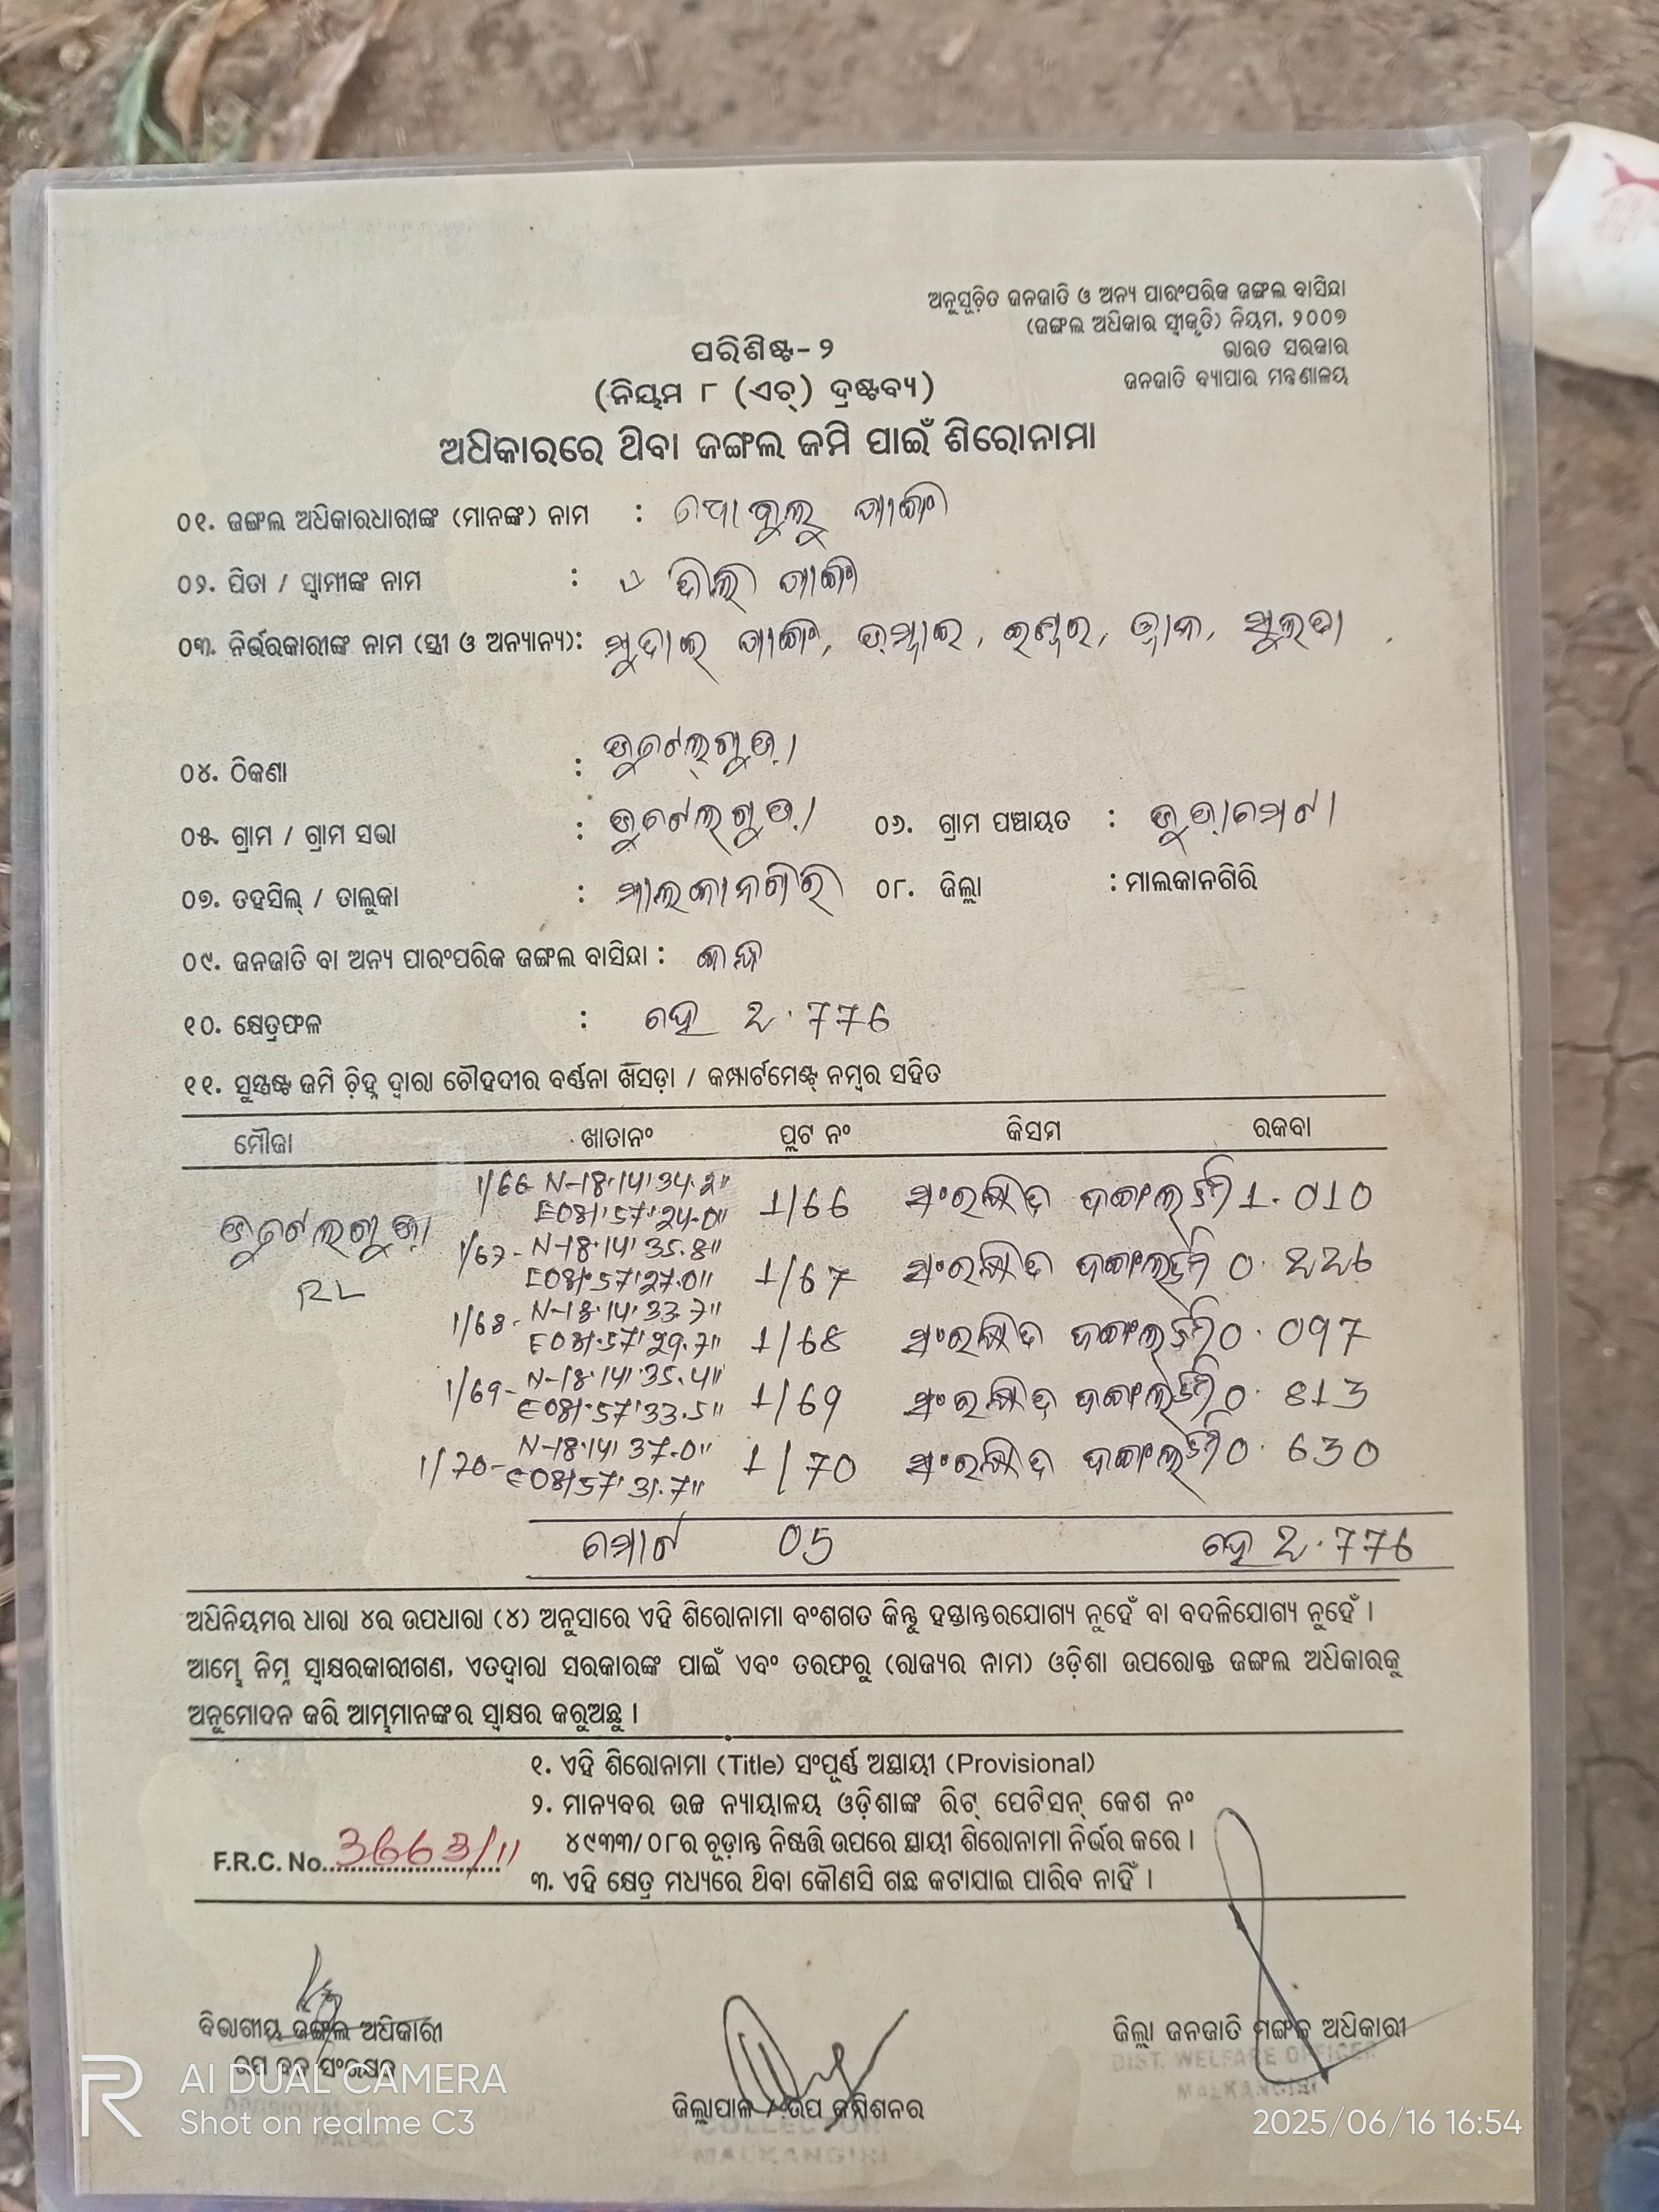 ଅନୁସୂଚିତ ଜନଜାତି ଓ ଅନ୍ୟ ପାରଂପରିକ ଜଙ୍ଗଲ ବାସିନ୍ଦା
(ଜଙ୍ଗଲ ଅଧିକାର ସ୍ୱୀକୃତି) ନିୟମ, ୨୦୦୭
ଭାରତ ସରକାର
ଜନଜାତି ବ୍ୟାପାର ମନ୍ତ୍ରଣାଳୟ
ପରିଶିଷ୍ଟ-୨
(ନିୟମ ୮ (ଏଚ୍) ଦ୍ରଷ୍ଟବ୍ୟ)
ଅଧିକାରରେ ଥିବା ଜଙ୍ଗଲ ଜମି ପାଇଁ ଶିରୋନାମା
୦୧. ଜଙ୍ଗଲ ଅଧିକାରଧାରୀଙ୍କ (ମାନଙ୍କ) ନାମ :
୦୨. ପିତା / ସ୍ୱାମୀଙ୍କ ନାମ :
୦୩. ନିର୍ଭରକାରୀଙ୍କ ନାମ (ସ୍ତ୍ରୀ ଓ ଅନ୍ୟାନ୍ୟ):
୦୪. ଠିକଣା :
୦୫. ଗ୍ରାମ / ଗ୍ରାମ ସଭା : ୦୬. ଗ୍ରାମ ପଞ୍ଚାୟତ :
୦୭. ତହସିଲ୍ / ତାଲୁକା : ମାଲକାନଗିରି ୦୮. ଜିଲ୍ଲା : ମାଲକାନଗିରି
୦୯. ଜନଜାତି ବା ଅନ୍ୟ ପାରଂପରିକ ଜଙ୍ଗଲ ବାସିନ୍ଦା :
୧୦. କ୍ଷେତ୍ରଫଳ : ହେ 2.776
୧୧. ସୁସ୍ପଷ୍ଟ ଜମି ଚିହ୍ନ ଦ୍ୱାରା ଚୌହଦୀର ବର୍ଣ୍ଣନା ଖସଡ଼ା / କମ୍ପାର୍ଟମେଣ୍ଟ୍ ନମ୍ବର ସହିତ
ମୌଜା ଖାତାନଂ ପ୍ଲଟ ନଂ କିସମ ରକବା
1/66 N-18°14'34.2"
E081°57'24.0" 1/66 ସଂରକ୍ଷିତ ଜଙ୍ଗଲ ଜମି 1.010
1/67- N-18°14'35.8"
RL E081°57'27.0" 1/67 ସଂରକ୍ଷିତ ଜଙ୍ଗଲ ଜମି 0.226
1/68- N-18°14'33.7"
E081°57'29.7" 1/68 ସଂରକ୍ଷିତ ଜଙ୍ଗଲ ଜମି 0.097
1/69- N-18°14'35.4"
E081°57'33.5" 1/69 ସଂରକ୍ଷିତ ଜଙ୍ଗଲ ଜମି 0.813
1/70- N-18°14'37.0"
E081°57'31.7" 1/70 ସଂରକ୍ଷିତ ଜଙ୍ଗଲ ଜମି 0.630
ମୋଟ 05 ହେ 2.776
ଅଧିନିୟମର ଧାରା ୪ର ଉପଧାରା (୪) ଅନୁସାରେ ଏହି ଶିରୋନାମା ବଂଶଗତ କିନ୍ତୁ ହସ୍ତାନ୍ତରଯୋଗ୍ୟ ନୁହେଁ ବା ବଦଳିଯୋଗ୍ୟ ନୁହେଁ ।
ଆମ୍ଭେ ନିମ୍ନ ସ୍ୱାକ୍ଷରକାରୀଗଣ, ଏତଦ୍ୱାରା ସରକାରଙ୍କ ପାଇଁ ଏବଂ ତରଫରୁ (ରାଜ୍ୟର ନାମ) ଓଡ଼ିଶା ଉପରୋକ୍ତ ଜଙ୍ଗଲ ଅଧିକାରକୁ
ଅନୁମୋଦନ କରି ଆମ୍ଭମାନଙ୍କର ସ୍ୱାକ୍ଷର କରୁଅଛୁ ।
୧. ଏହି ଶିରୋନାମା (Title) ସଂପୂର୍ଣ୍ଣ ଅସ୍ଥାୟୀ (Provisional)
୨. ମାନ୍ୟବର ଉଚ୍ଚ ନ୍ୟାୟାଳୟ ଓଡ଼ିଶାଙ୍କ ରିଟ୍ ପେଟିସନ୍ କେଶ ନଂ
୪୯୩୩/୦୮ର ଚୂଡ଼ାନ୍ତ ନିଷ୍ପତ୍ତି ଉପରେ ସ୍ଥାୟୀ ଶିରୋନାମା ନିର୍ଭର କରେ ।
F.R.C. No. 3663/11
୩. ଏହି କ୍ଷେତ୍ର ମଧ୍ୟରେ ଥିବା କୌଣସି ଗଛ କଟାଯାଇ ପାରିବ ନାହିଁ ।
ବିଭାଗୀୟ ଜଙ୍ଗଲ ଅଧିକାରୀ
ଉପ ବନ ସଂରକ୍ଷକ
ଜିଲ୍ଲା ଜନଜାତି ମଙ୍ଗଳ ଅଧିକାରୀ
DIST. WELFARE OFFICER
MALKANGIRI
ଜିଲ୍ଲାପାଳ / ଉପ କମିଶନର
COLLECTOR
MALKANGIRI
AI DUAL CAMERA
Shot on realme C3
2025/06/16 16:54